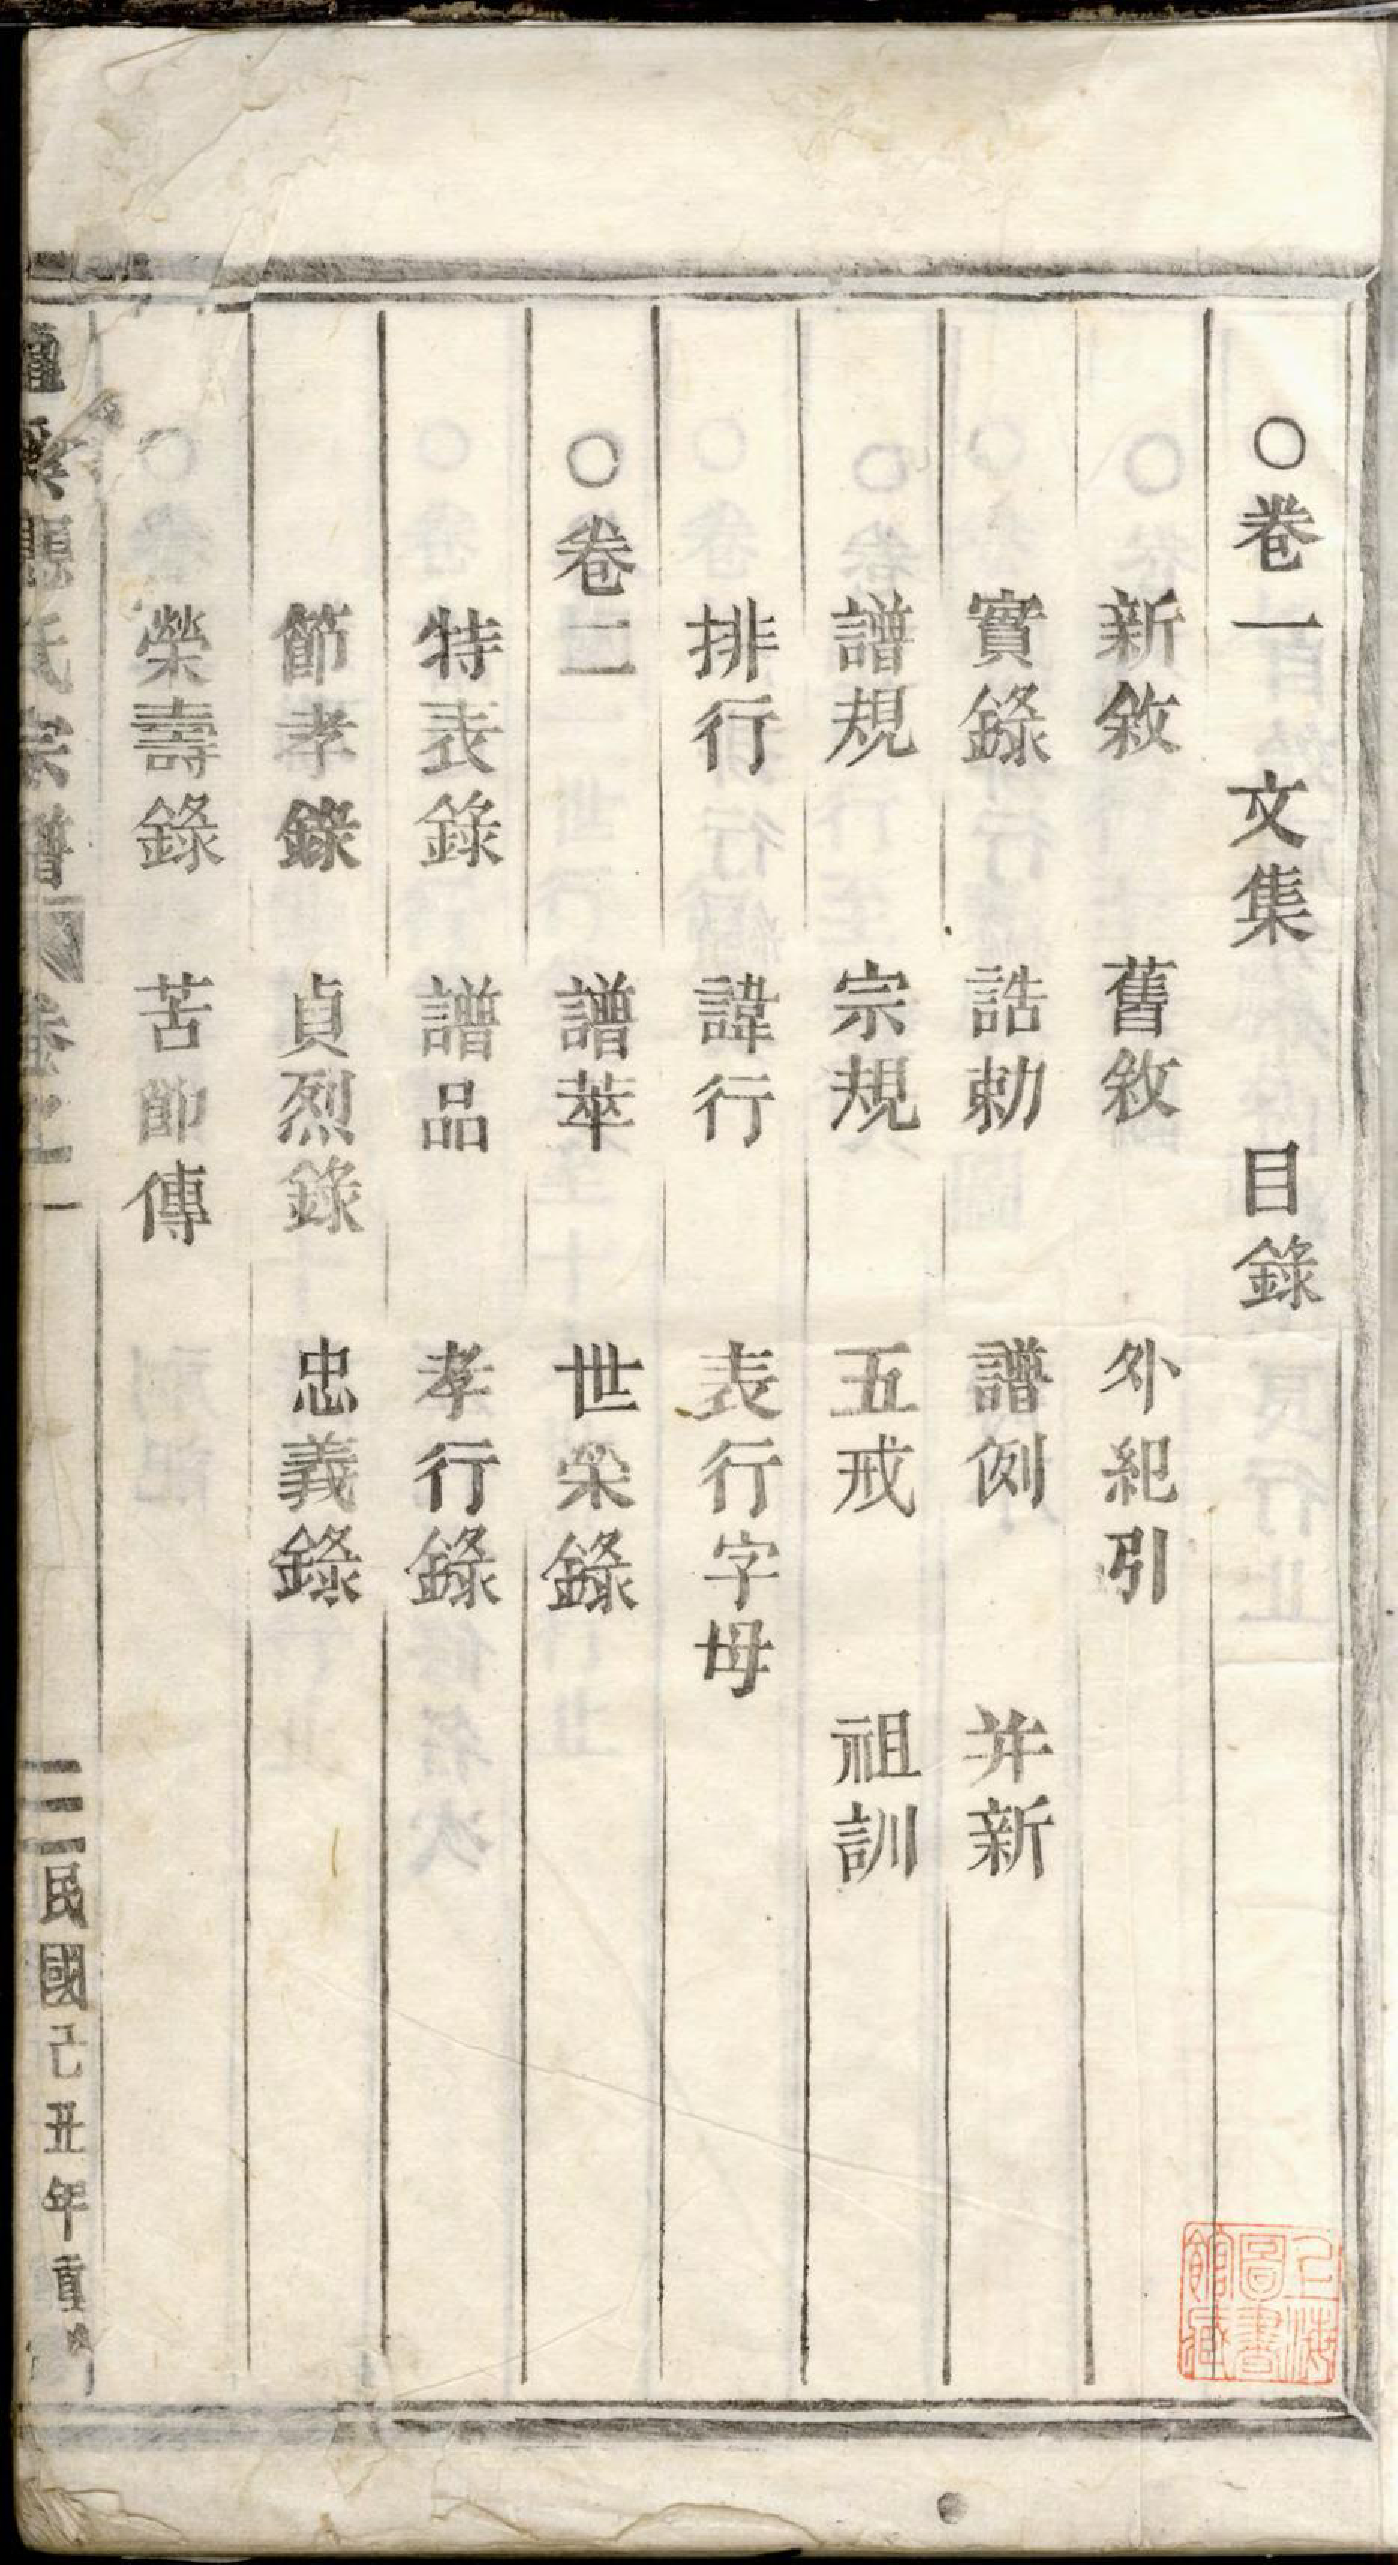 ○卷一 文集 目錄
新敘 舊敘 外紀引
實錄 誥勅 譜例 并新
譜規 宗規 五戒 祖訓
排行 諱行 表行字母
○卷二 譜萃 世榮錄
特表錄 譜品 孝行錄
節孝錄 貞烈錄 忠義錄
榮壽錄 苦節傳
氏宗譜 卷之一 民國己丑年重
上海圖書館藏